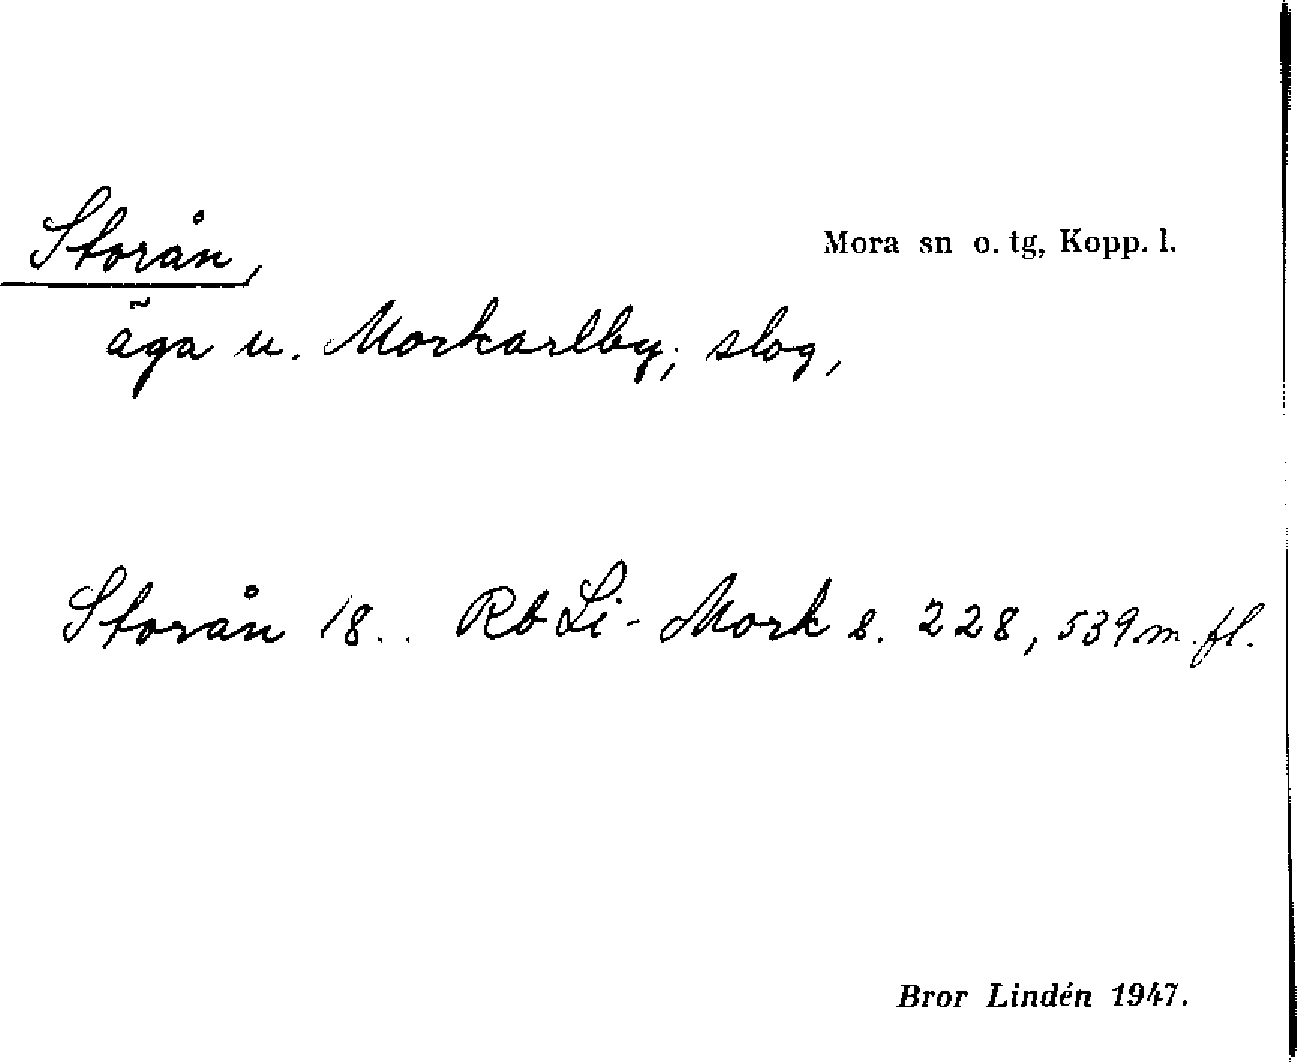 Storån,
Mora sn o. tg, Kopp. l.
äga u. Morkarlby; slog,
Storån 18.. Rb Li-Mork s. 228, 539 m. fl.
Bror Lindén 1947.